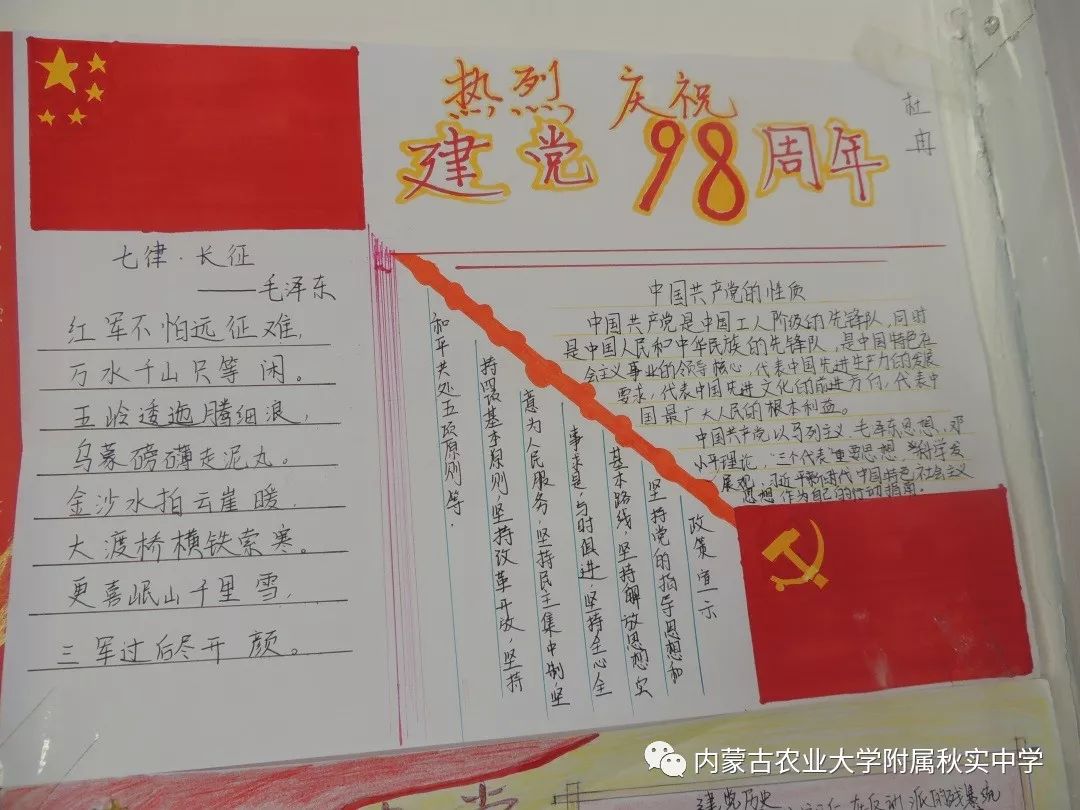 热烈 庆祝
建党98周年
杜冉
七律·长征
——毛泽东
红军不怕远征难，
万水千山只等闲。
五岭逶迤腾细浪，
乌蒙磅礴走泥丸。
金沙水拍云崖暖，
大渡桥横铁索寒。
更喜岷山千里雪，
三军过后尽开颜。
中国共产党的性质
中国共产党是中国工人阶级的先锋队，同时
是中国人民和中华民族的先锋队，是中国特色社
会主义事业的领导核心，代表中国先进生产力的发展
要求，代表中国先进文化的前进方向，代表中
国最广大人民的根本利益。
中国共产党以马列主义、毛泽东思想、邓
小平理论，"三个代表"重要思想、科学发
展观、习近平新时代中国特色社会主义
思想作为自己的行动指南。
政策宣示
坚持党的指导思想和
基本路线，坚持解放思想实
事求是，与时俱进，坚持全心全
意为人民服务，坚持民主集中制，坚
持四项基本原则，坚持改革开放，坚持
和平共处五项原则等.
建党历史
内蒙古农业大学附属秋实中学